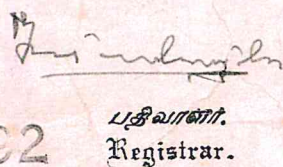 பதிவாளர்.
92 Registrar.